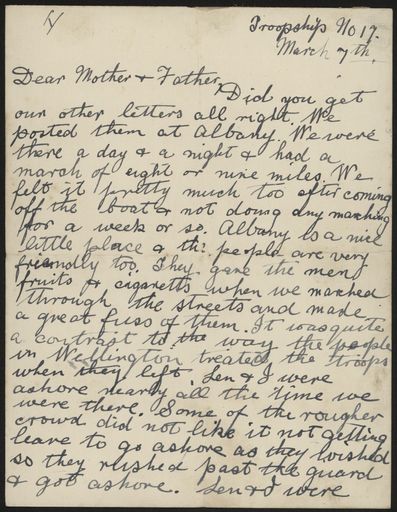 Troopship No 17.
March 7th.
Dear Mother & Father,
Did you get
our other letters all right. We
posted them at Albany. We were
there a day & a night & had a
march of eight or nine miles. We
felt it pretty much too after coming
off the boat & not doing any marching
for a week or so. Albany is a nice
little place & the people are very
friendly too. They gave the men
fruits & cigaretts when we marched
through the streets and made
a great fuss of them. It was quite
a contrast to the way the people
in Wellington treated the troops
when they left. Len & I were
ashore nearly all the time we
were there. Some of the rougher
crowd did not like it not getting
leave to go ashore as they wished
so they rushed past the guard
& got ashore. Len & I were